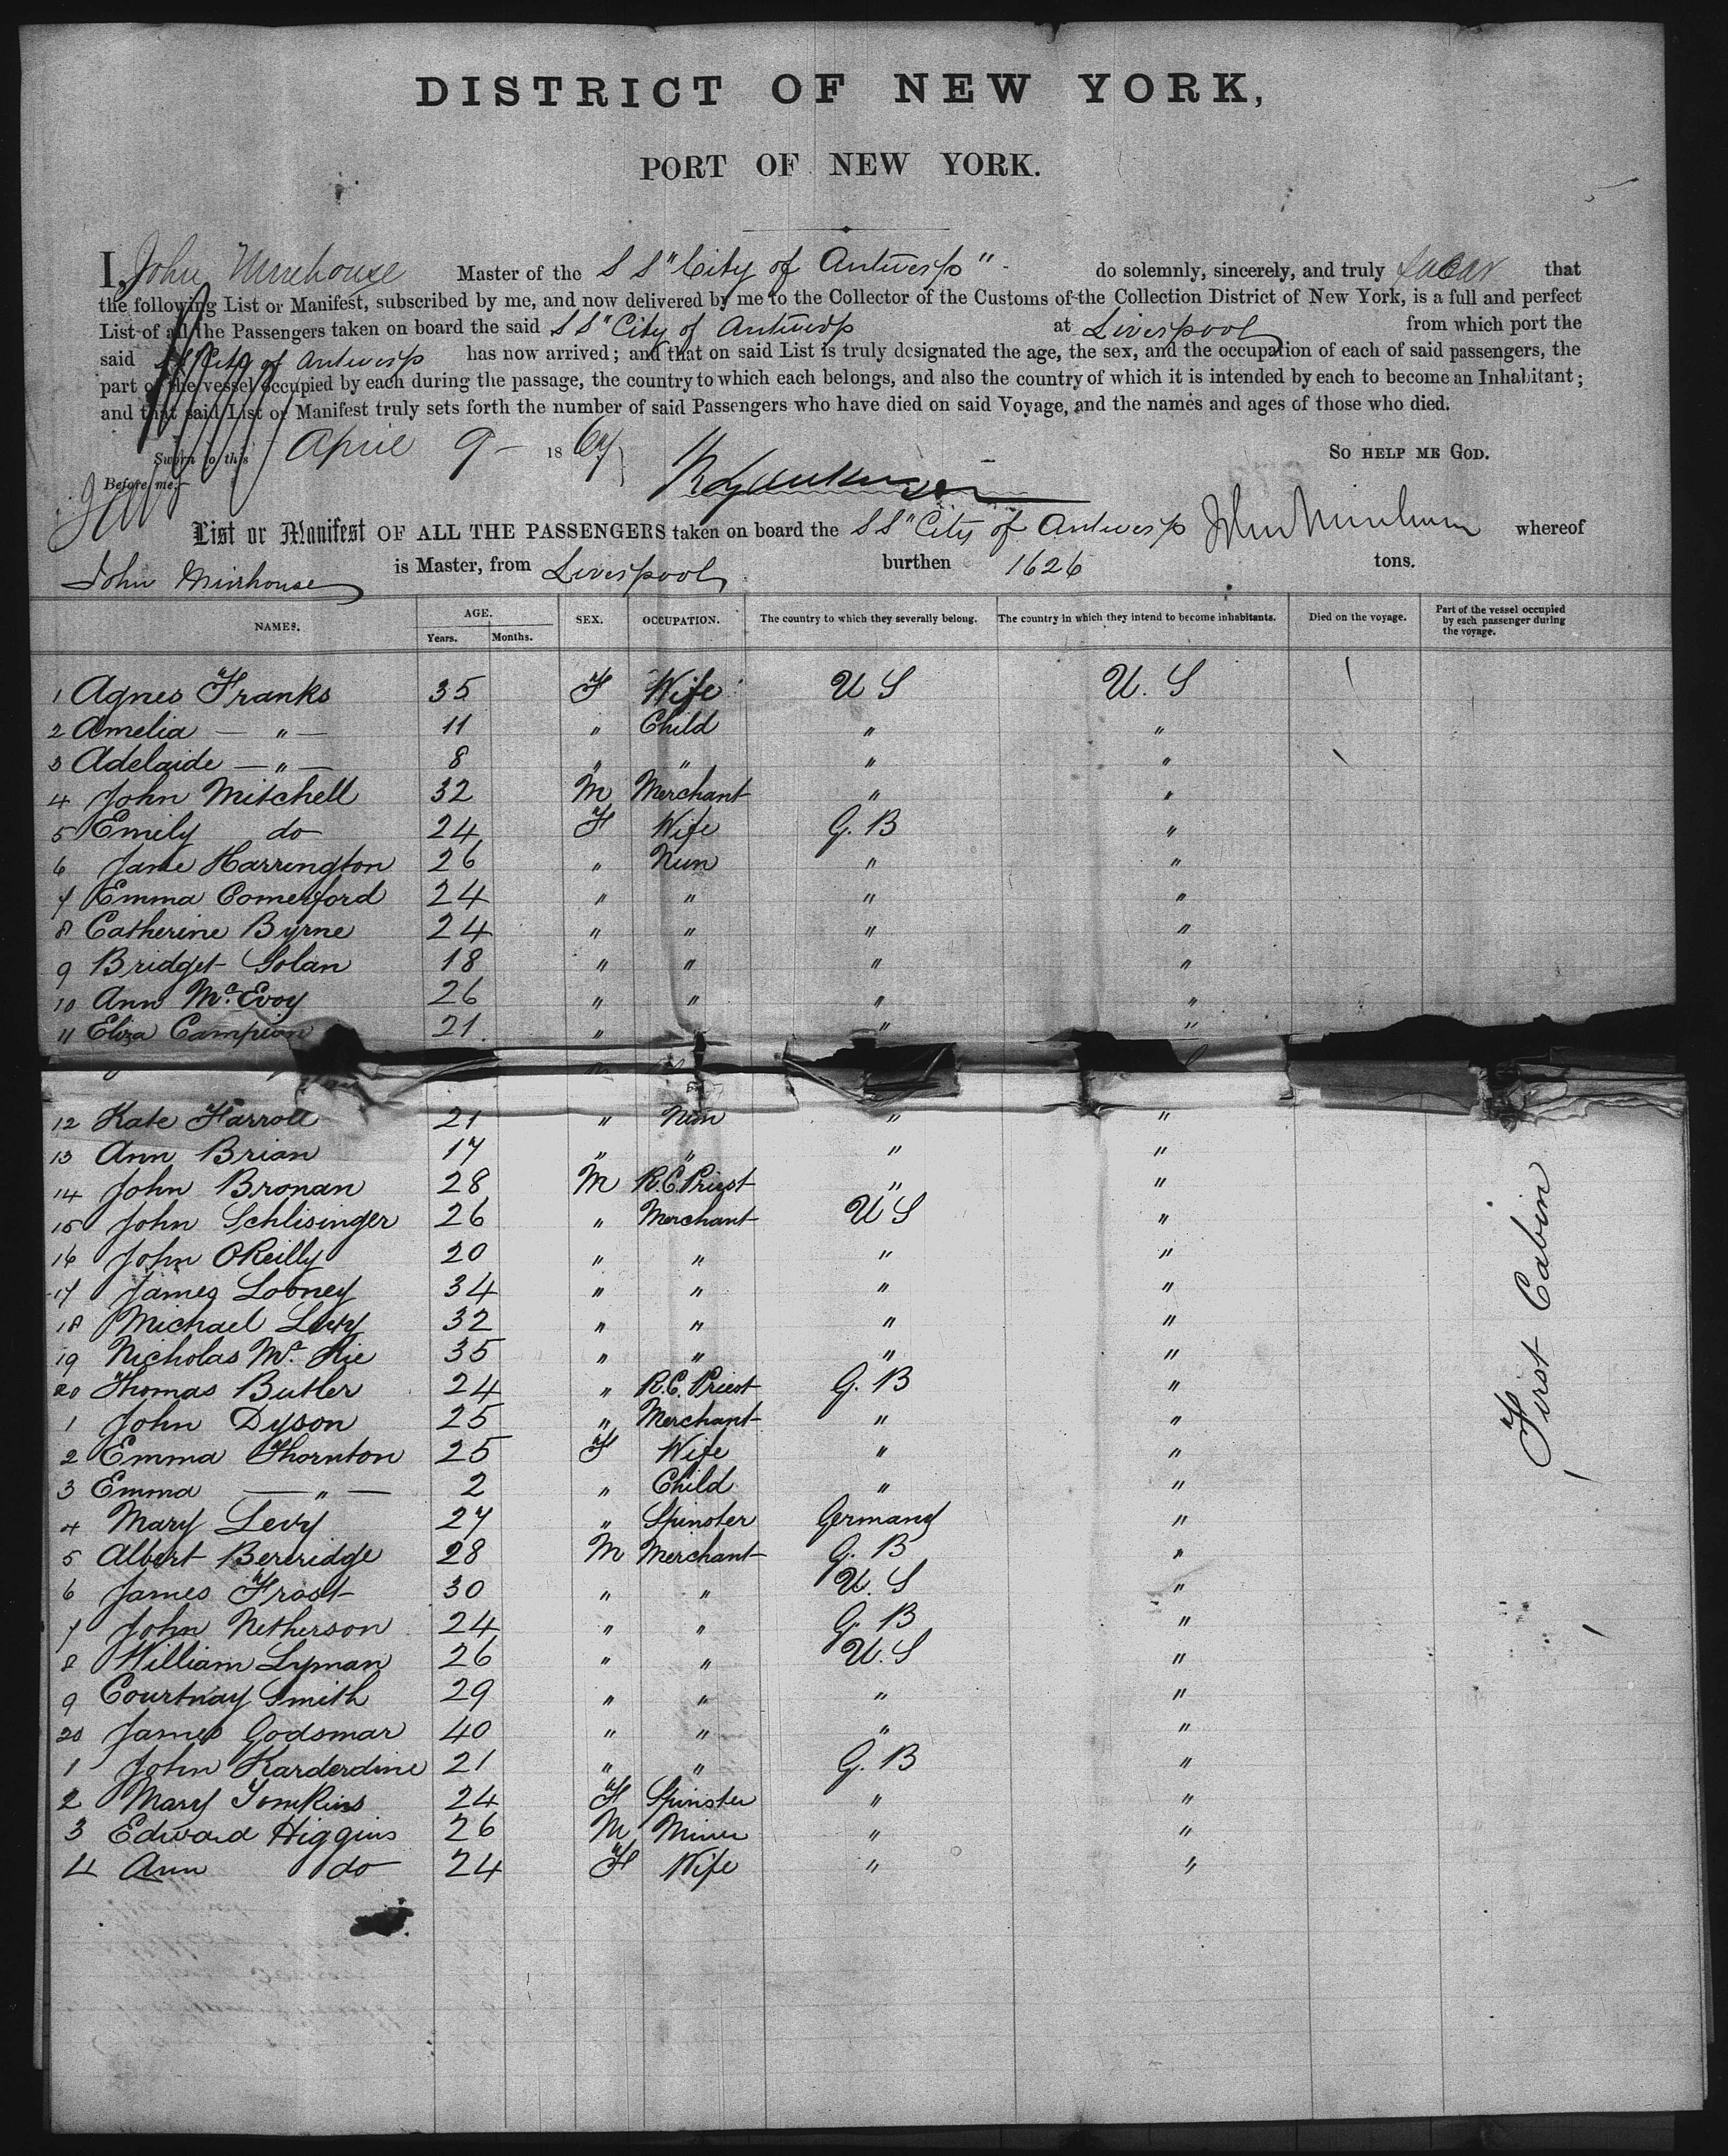 DISTRICT OF NEW YORK,
PORT OF NEW YORK.
I, John Mirehouse Master of the S S "City of Antwerp" do solemnly, sincerely, and truly swear that
the following List or Manifest, subscribed by me, and now delivered by me to the Collector of the Customs of the Collection District of New York, is a full and perfect
List of all the Passengers taken on board the said S S "City of Antwerp at Liverpool from which port the
said S S City of Antwerp has now arrived; and that on said List is truly designated the age, the sex, and the occupation of each of said passengers, the
part of the vessel occupied by each during the passage, the country to which each belongs, and also the country of which it is intended by each to become an Inhabitant;
and that said List or Manifest truly sets forth the number of said Passengers who have died on said Voyage, and the names and ages of those who died.
Sworn to this April 9 1867 SO HELP ME GOD.
Before me,
List or Manifest OF ALL THE PASSENGERS taken on board the S S "City of Antwerp John Mirehouse whereof
John Mirehouse is Master, from Liverpool burthen 1626 tons.
NAMES. AGE. Years. Months. SEX. OCCUPATION. The country to which they severally belong. The country in which they intend to become inhabitants. Died on the voyage. Part of the vessel occupied by each passenger during the voyage.
1 Agnes Franks 35 F Wife U S U. S
2 Amelia — " — 11 " Child " "
3 Adelaide — " — 8 " " " "
4 John Mitchell 32 M Merchant " "
5 Emily do 24 F Wife G. B "
6 Jane Harrington 26 " Nun " "
7 Emma Comerford 24 " " " "
8 Catherine Byrne 24 " " " "
9 Bridget Golan 18 " " " "
10 Ann Mc.Evoy 26 " " " "
11 Eliza Campion 21 " " "
12 Kate Farroll 21 " Nun " "
13 Ann Brian 17 " " " "
14 John Bronan 28 M R.C. Priest " "
15 John Schlisinger 26 " Merchant U S "
16 John OReilly 20 " " " "
17 James Looney 34 " " " "
18 Michael Levy 32 " " " "
19 Nicholas Mc. Kie 35 " " " "
20 Thomas Butler 24 " R.C. Priest G. B "
1 John Dyson 25 " Merchant " "
2 Emma Thornton 25 F Wife " "
3 Emma — " — 2 " Child " "
4 Mary Levy 27 " Spinster Germany "
5 Albert Berridge 28 M Merchant G. B "
6 James Frost 30 " " U. S "
7 John Netherson 24 " " G. B "
8 William Lyman 26 " " U. S "
9 Courtnay Smith 29 " " " "
20 James Godsmar 40 " " " "
1 John Karderdine 21 " " G. B "
2 Mary Tomkins 24 F Spinster " "
3 Edward Higgins 26 M Miner " "
4 Ann do 24 F Wife " "
First Cabin